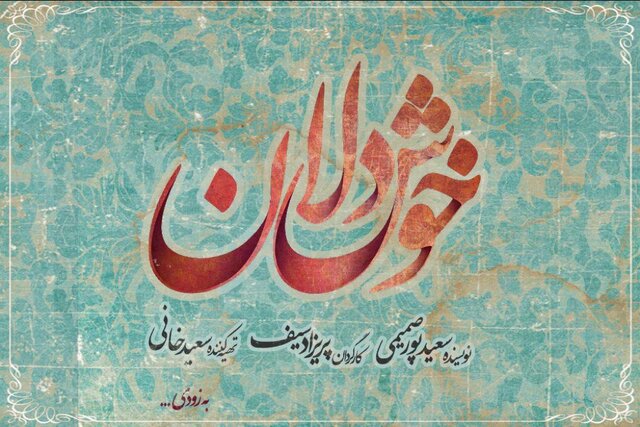 خوش‌دلان
نویسنده سعید پورصمیمی کارگردان پریزاد سیف تهیه کننده سعید خانی
به زودی ...